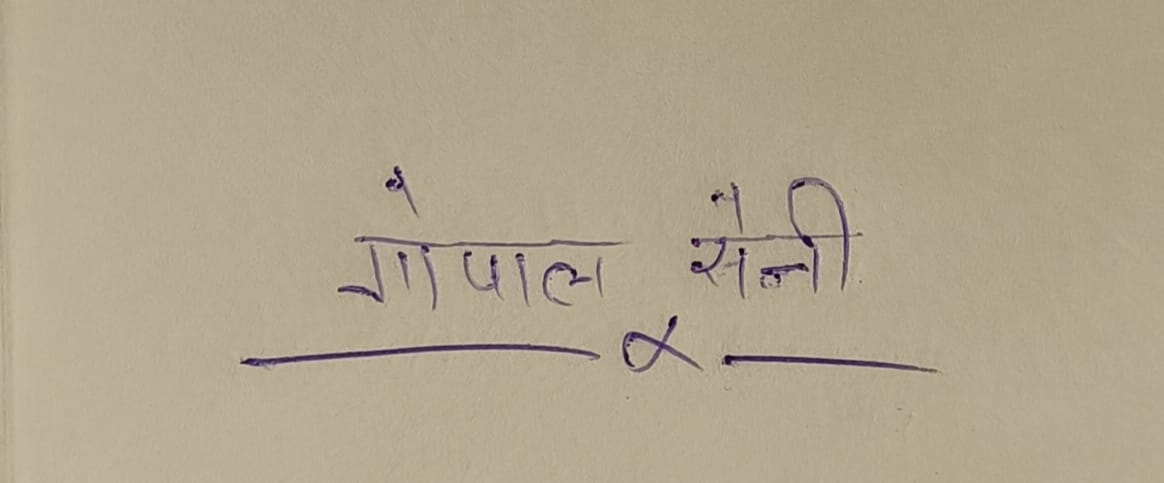 गोपाल सैनी